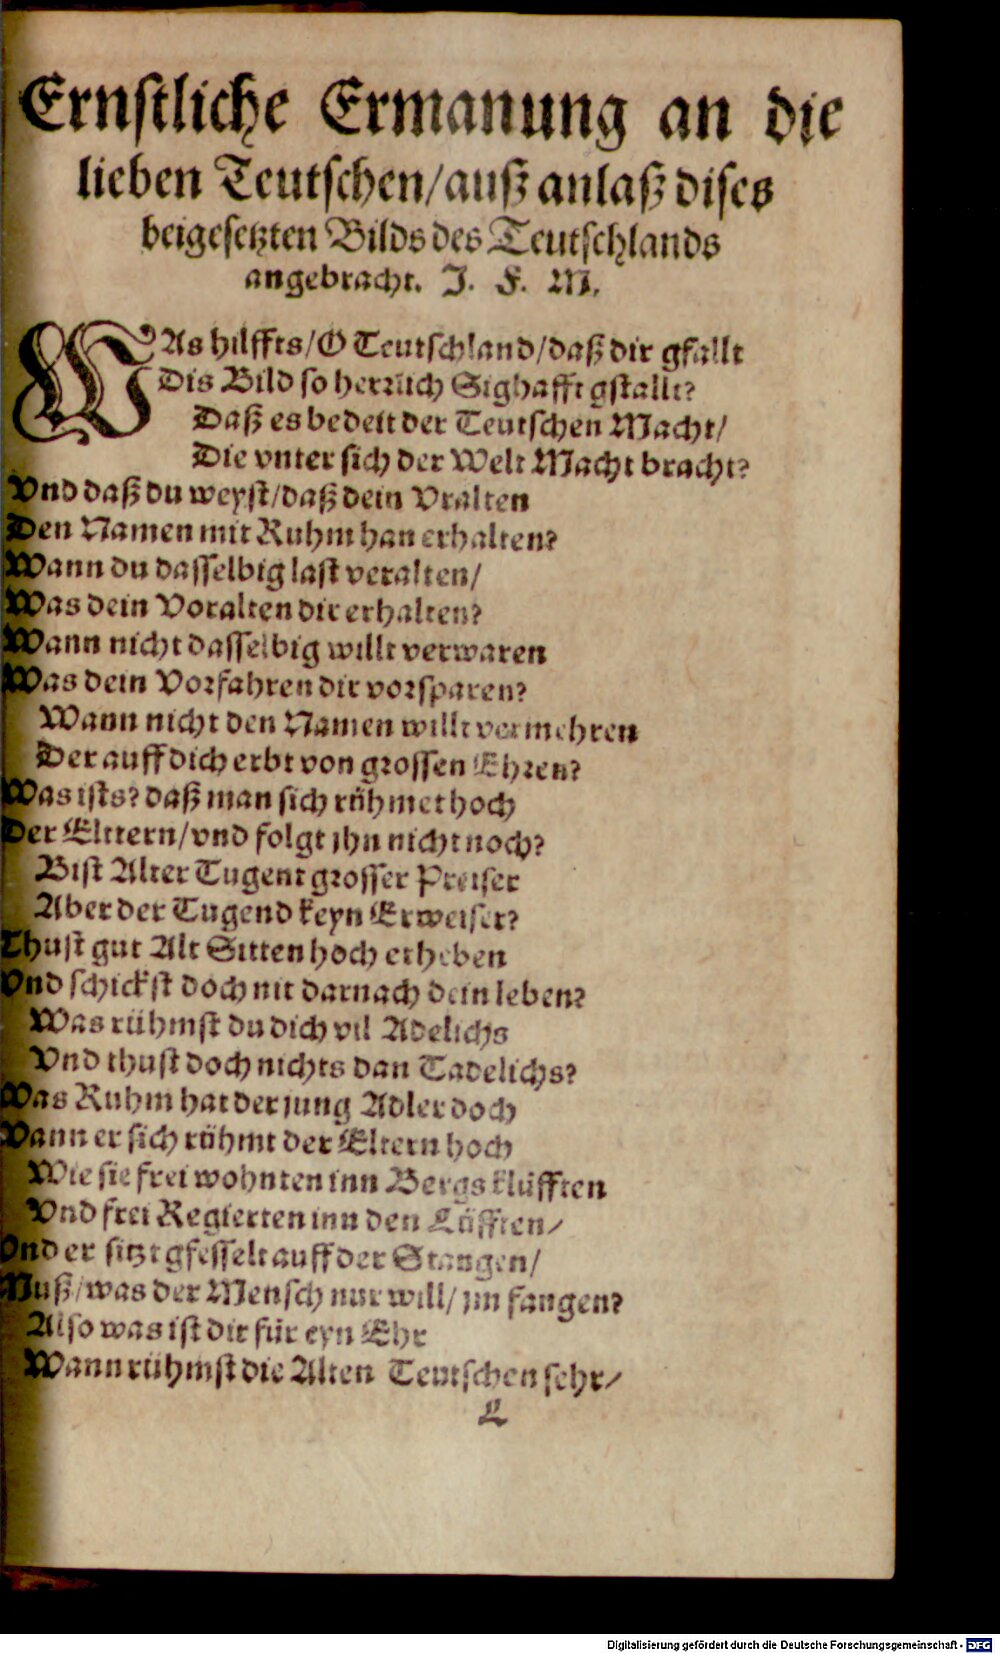 Ernſtliche Ermanung an die
lieben Teutſchen/auß anlaß diſes
beigeſetzten Bilds des Teutſchlands
angebracht. J. F. M.
WAs hilffts/O Teutſchland/daß dir gfallt
Dis Bild ſo herrlich Sighafft gſtallt?
Daß es bedeit der Teutſchen Macht/
Die vnter ſich der Welt Macht bracht?
Vnd daß du weyſt/daß dein Vralten
Den Namen mit Ruhm han erhalten?
Wann du daſſelbig laſt veralten/
Was dein Voralten dir erhalten?
Wann nicht daſſelbig willt verwaren
Was dein Vorfahren dir vorſparen?
Wann nicht den Namen willt vermehren
Der auff dich erbt von groſſen Ehren?
Was iſts? daß man ſich rühmet hoch
Der Elttern/vnd folgt jhn nicht noch?
Biſt Alter Tugent groſſer Preiſer
Aber der Tugend keyn Erweiſer?
Thuſt gut Alt Sitten hoch erheben
Vnd ſchickſt doch nit darnach dein leben?
Was rühmſt du dich vil Adelichs
Vnd thuſt doch nichts dan Tadelichs?
Was Ruhm hat der jung Adler doch
Wann er ſich rühmt der Eltern hoch
Wie ſie frei wohnten inn Bergs klüfften
Vnd frei Regierten inn den Lüfften/
Vnd er ſitzt gfeſſelt auff der Stangen/
Muß/was der Menſch nur will/jm fangen?
Alſo was iſt dir für eyn Ehr
Wann rühmſt die Alten Teutſchen ſehr/
L
Digitalisierung gefördert durch die Deutsche Forschungsgemeinschaft - DFG